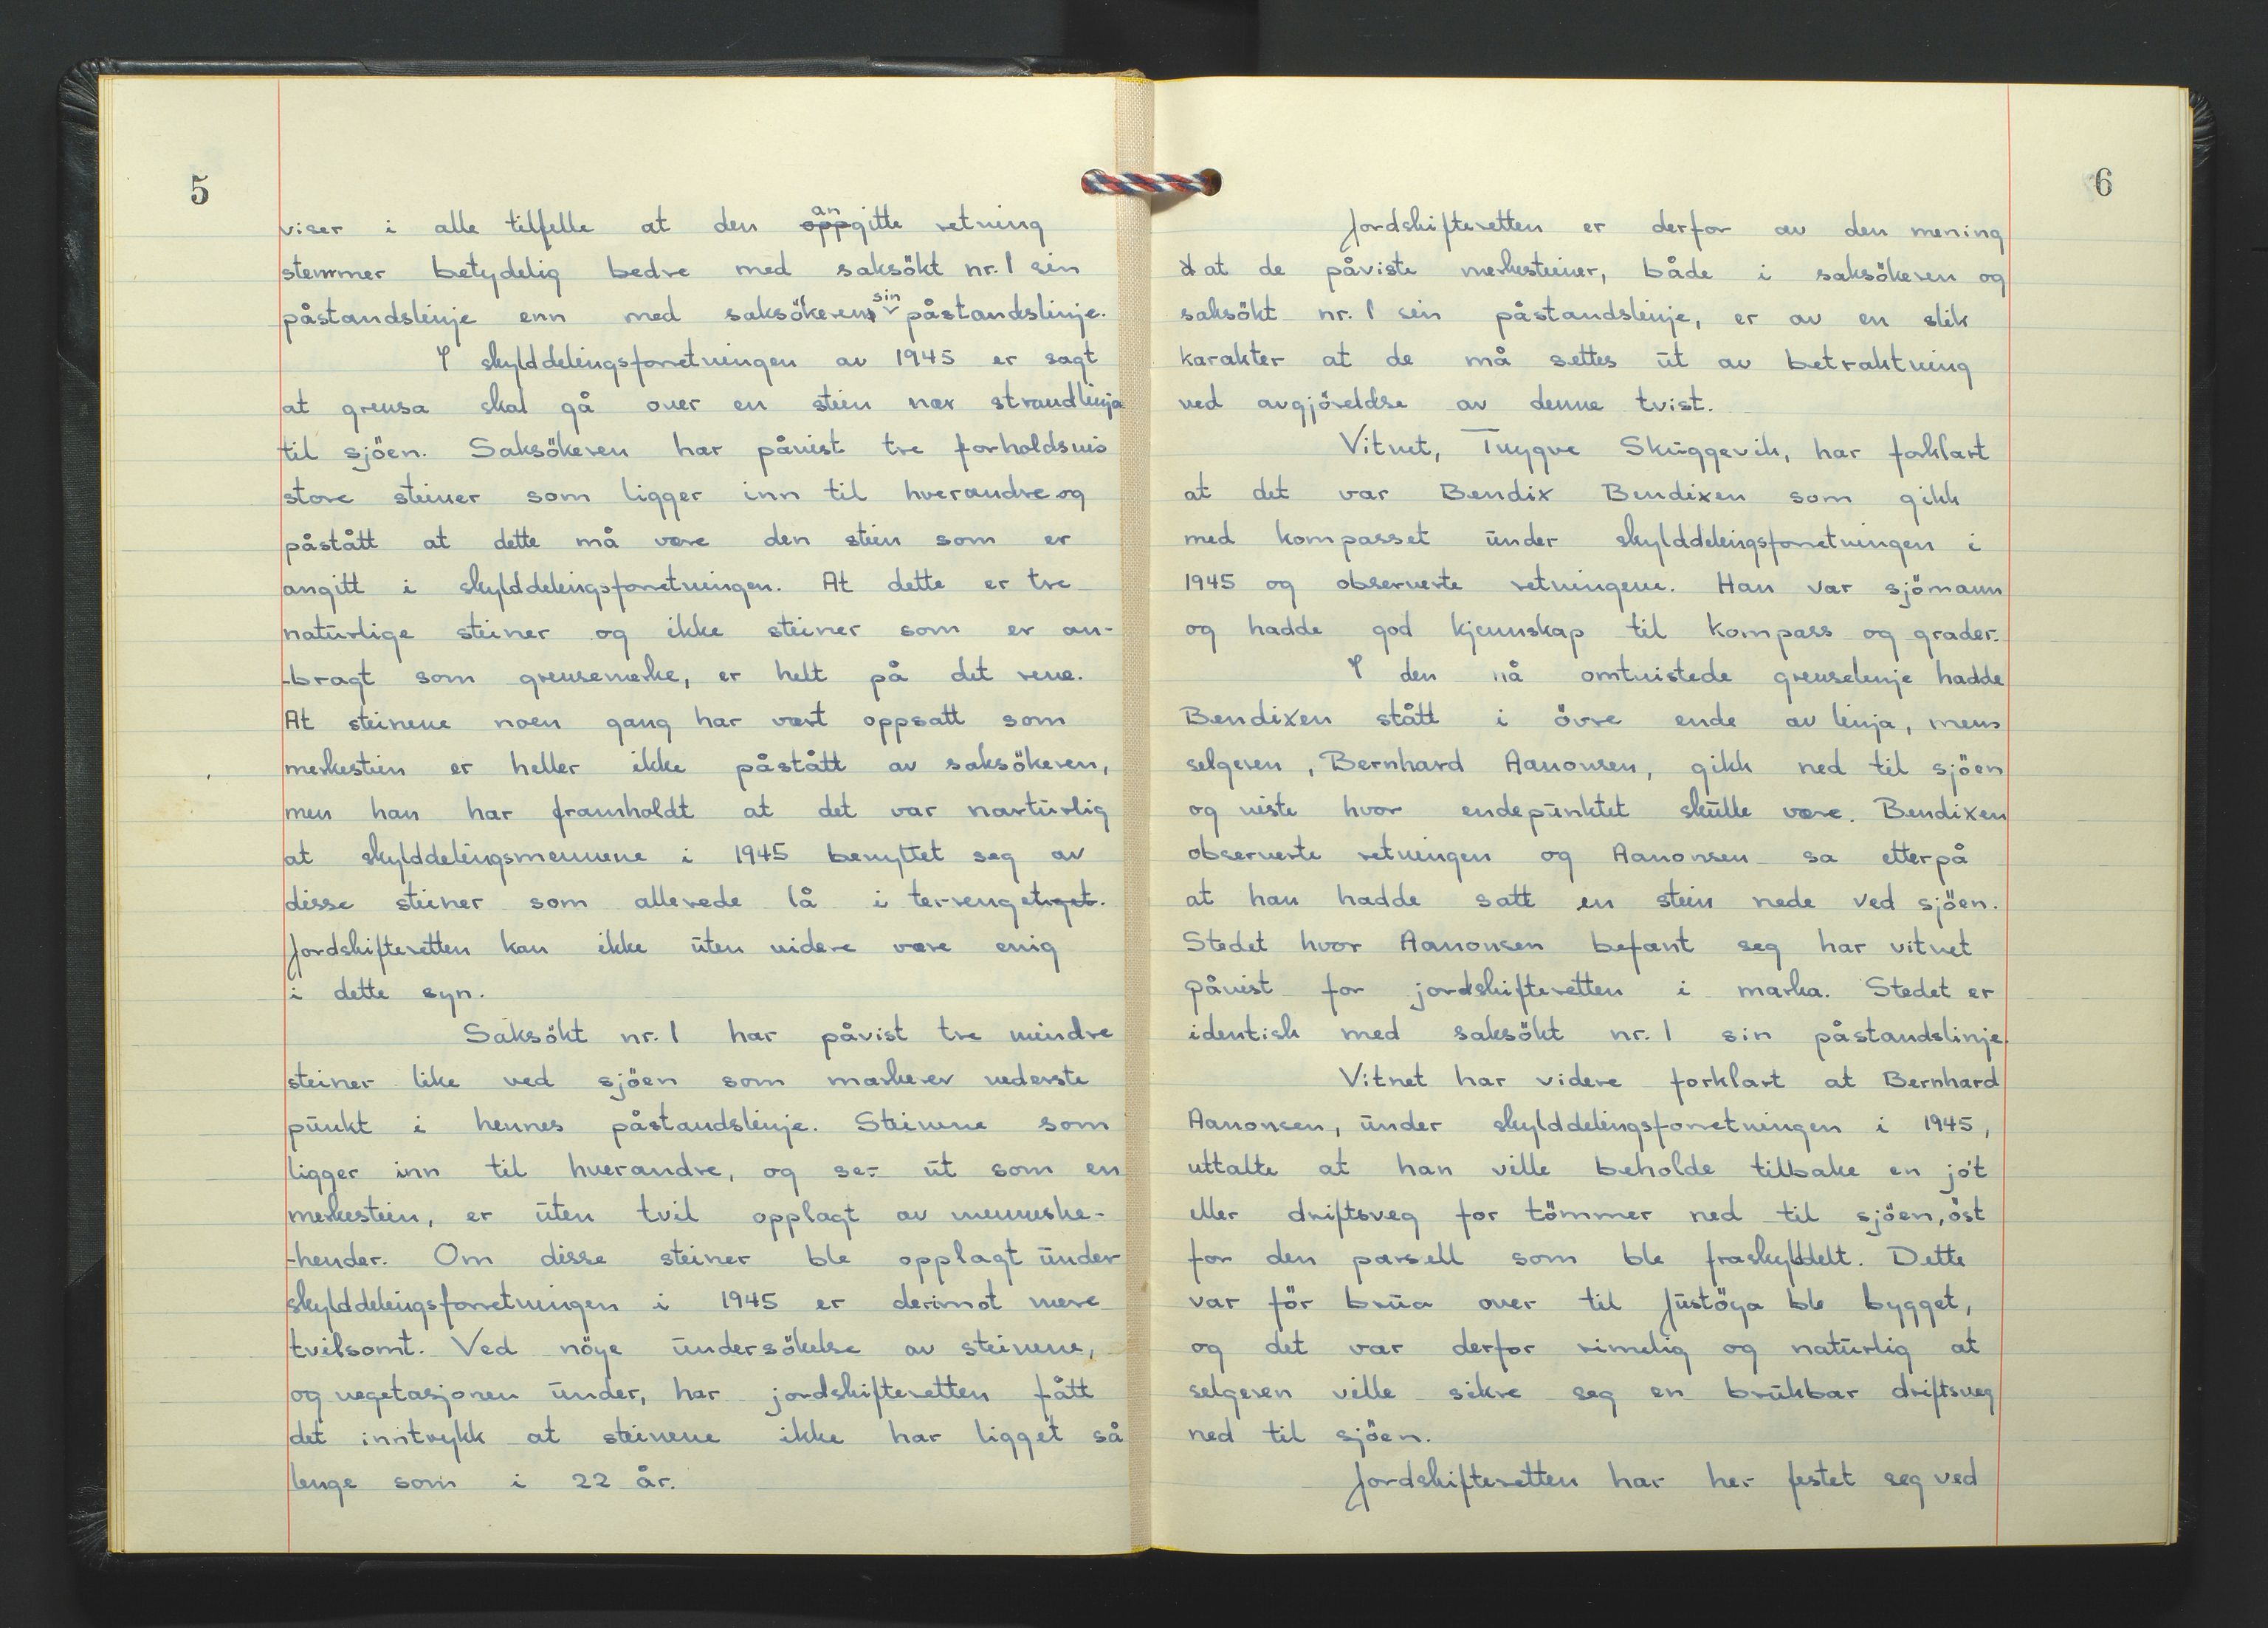 5
viser i alle tilfelle at den ~~opp~~ an gitte retning
stemmer betydelig bedre med saksökt nr. 1 sin
påstandslinje enn med saksökeren sin påstandslinje.
I skylddelingsforretningen av 1945 er sagt
at grensa skal gå over en stein nær strandlinja
til sjöen. Saksökeren har påvist tre forholdsvis
store steiner som ligger inn til hverandre og
påstått at dette må være den stein som er
angitt i skylddelingsforretningen. At dette er tre
naturlige steiner og ikke steiner som er an-
-bragt som grensemerke, er helt på det rene.
At steinene noen gang har vært oppsatt som
merkestein er heller ikke påstått av saksökeren,
men han har framholdt at det var narturlig
at skylddelingsmennene i 1945 benyttet seg av
disse steiner som allerede lå i terrenget~~rget~~.
Jordskifteretten kan ikke uten videre være enig
i dette syn.
Saksökt nr. 1 har påvist tre mindre
steiner like ved sjöen som markerer nederste
punkt i hennes påstandslinje. Steinene som
ligger inn til hverandre, og ser ut som en
merkestein, er uten tvil opplagt av menneske-
-hender. Om disse steiner ble opplagt under
skylddelingsforretningen i 1945 er derimot mere
tvilsomt. Ved nöye undersökelse av steinene,
og vegetasjonen under, har jordskifteretten fått
det inntrykk at steinene ikke har ligget så
lenge som i 22 år.
6
Jordskifteretten er derfor av den mening
at de påviste merkesteiner, både i saksökeren og
saksökt nr. 1 sin påstandslinje, er av en slik
karakter at de må settes ut av betraktning
ved avgjöreldse av denne tvist.
Vitnet, Trygve Skuggevik, har forklart
at det var Bendix Bendixen som gikk
med kompasset under skylddelingsforretningen i
1945 og observerte retningene. Han var sjömann
og hadde god kjennskap til kompass og grader.
I den nå omtvistede grenselinje hadde
Bendixen stått i övre ende av linja, mens
selgeren, Bernhard Aanonsen, gikk ned til sjöen
og viste hvor endepunktet skulle være. Bendixen
observerte retningen og Aanonsen sa etterpå
at han hadde satt en stein nede ved sjöen.
Stedet hvor Aanonsen befant seg har vitnet
påvist for jordskifteretten i marka. Stedet er
identisk med saksökt nr. 1 sin påstandslinje.
Vitnet har videre forklart at Bernhard
Aanonsen, under skylddelingsforretningen i 1945,
uttalte at han ville beholde tilbake en jo't
eller driftsveg for tömmer ned til sjöen, öst
for den parsell som ble fraskylddelt. Dette
var för brua over til Justöya ble bygget,
og det var derfor rimelig og naturlig at
selgeren ville sikre seg en brukbar driftsveg
ned til sjöen.
Jordskifteretten har her festet seg ved